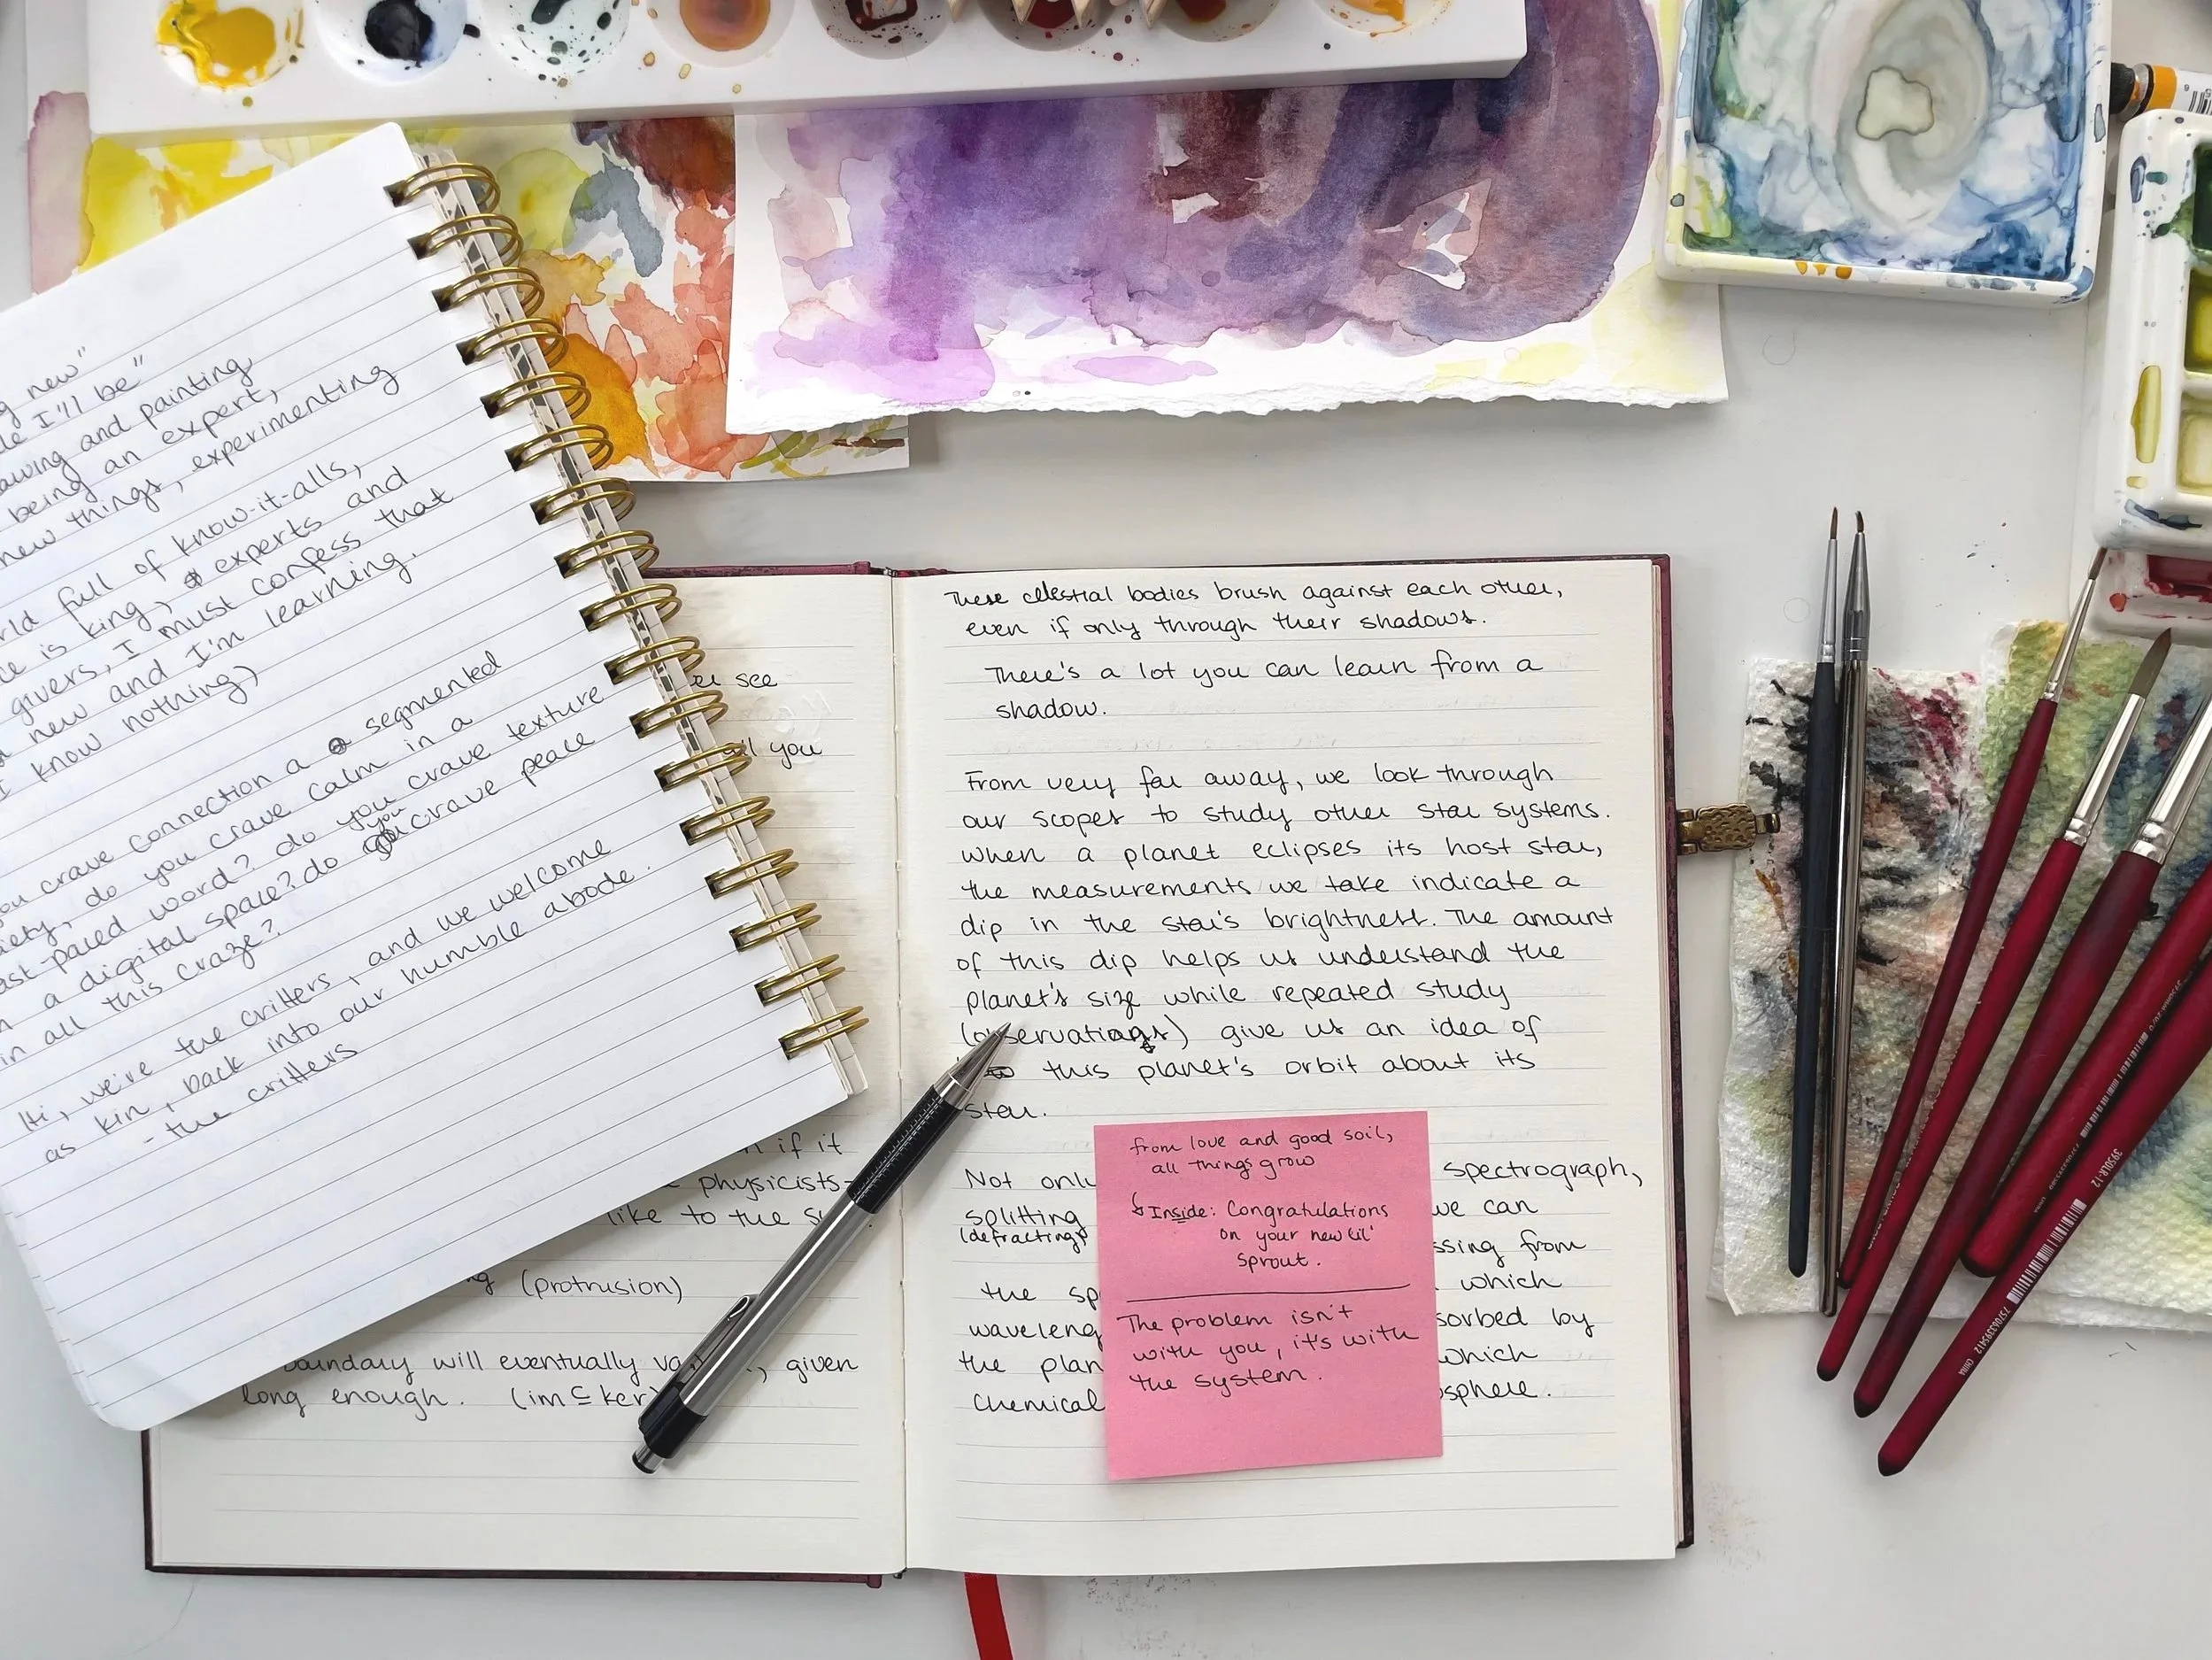 g new"
I'll be"
and painting
being an expert,
new things, experimenting
full of know-it-alls,
is king, experts and
givers, I must confess that
new and I'm learning.
I know nothing)
you crave connection a segmented
do you crave calm in a
word? do you crave texture
a digital space? do you crave peace
in all this craze?
Hi, we're the critters, and we welcome
as kin, back into our humble abode.
- the critters
see
you
if it
physicists-
like to the
(protrusion)
boundary will eventually given
long enough. (im ⊆ ker)
These celestial bodies brush against each other,
even if only through their shadows.
There's a lot you can learn from a
shadow.
From very far away, we look through
our scopes to study other star systems.
when a planet eclipses its host star,
the measurements we take indicate a
dip in the star's brightness. The amount
of this dip helps us understand the
planet's size while repeated study
(observations) give us an idea of
this planet's orbit about its
star.
Not only spectrograph,
splitting we can
(defracting) ssing from
the sp which
waveleng sorbed by
the plan which
Chemical osphere.
from love and good soil,
all things grow
↳ Inside: Congratulations
on your new lil'
sprout.
The problem isn't
with you, it's with
the system.
3950LR-12
757063395412
CHINA